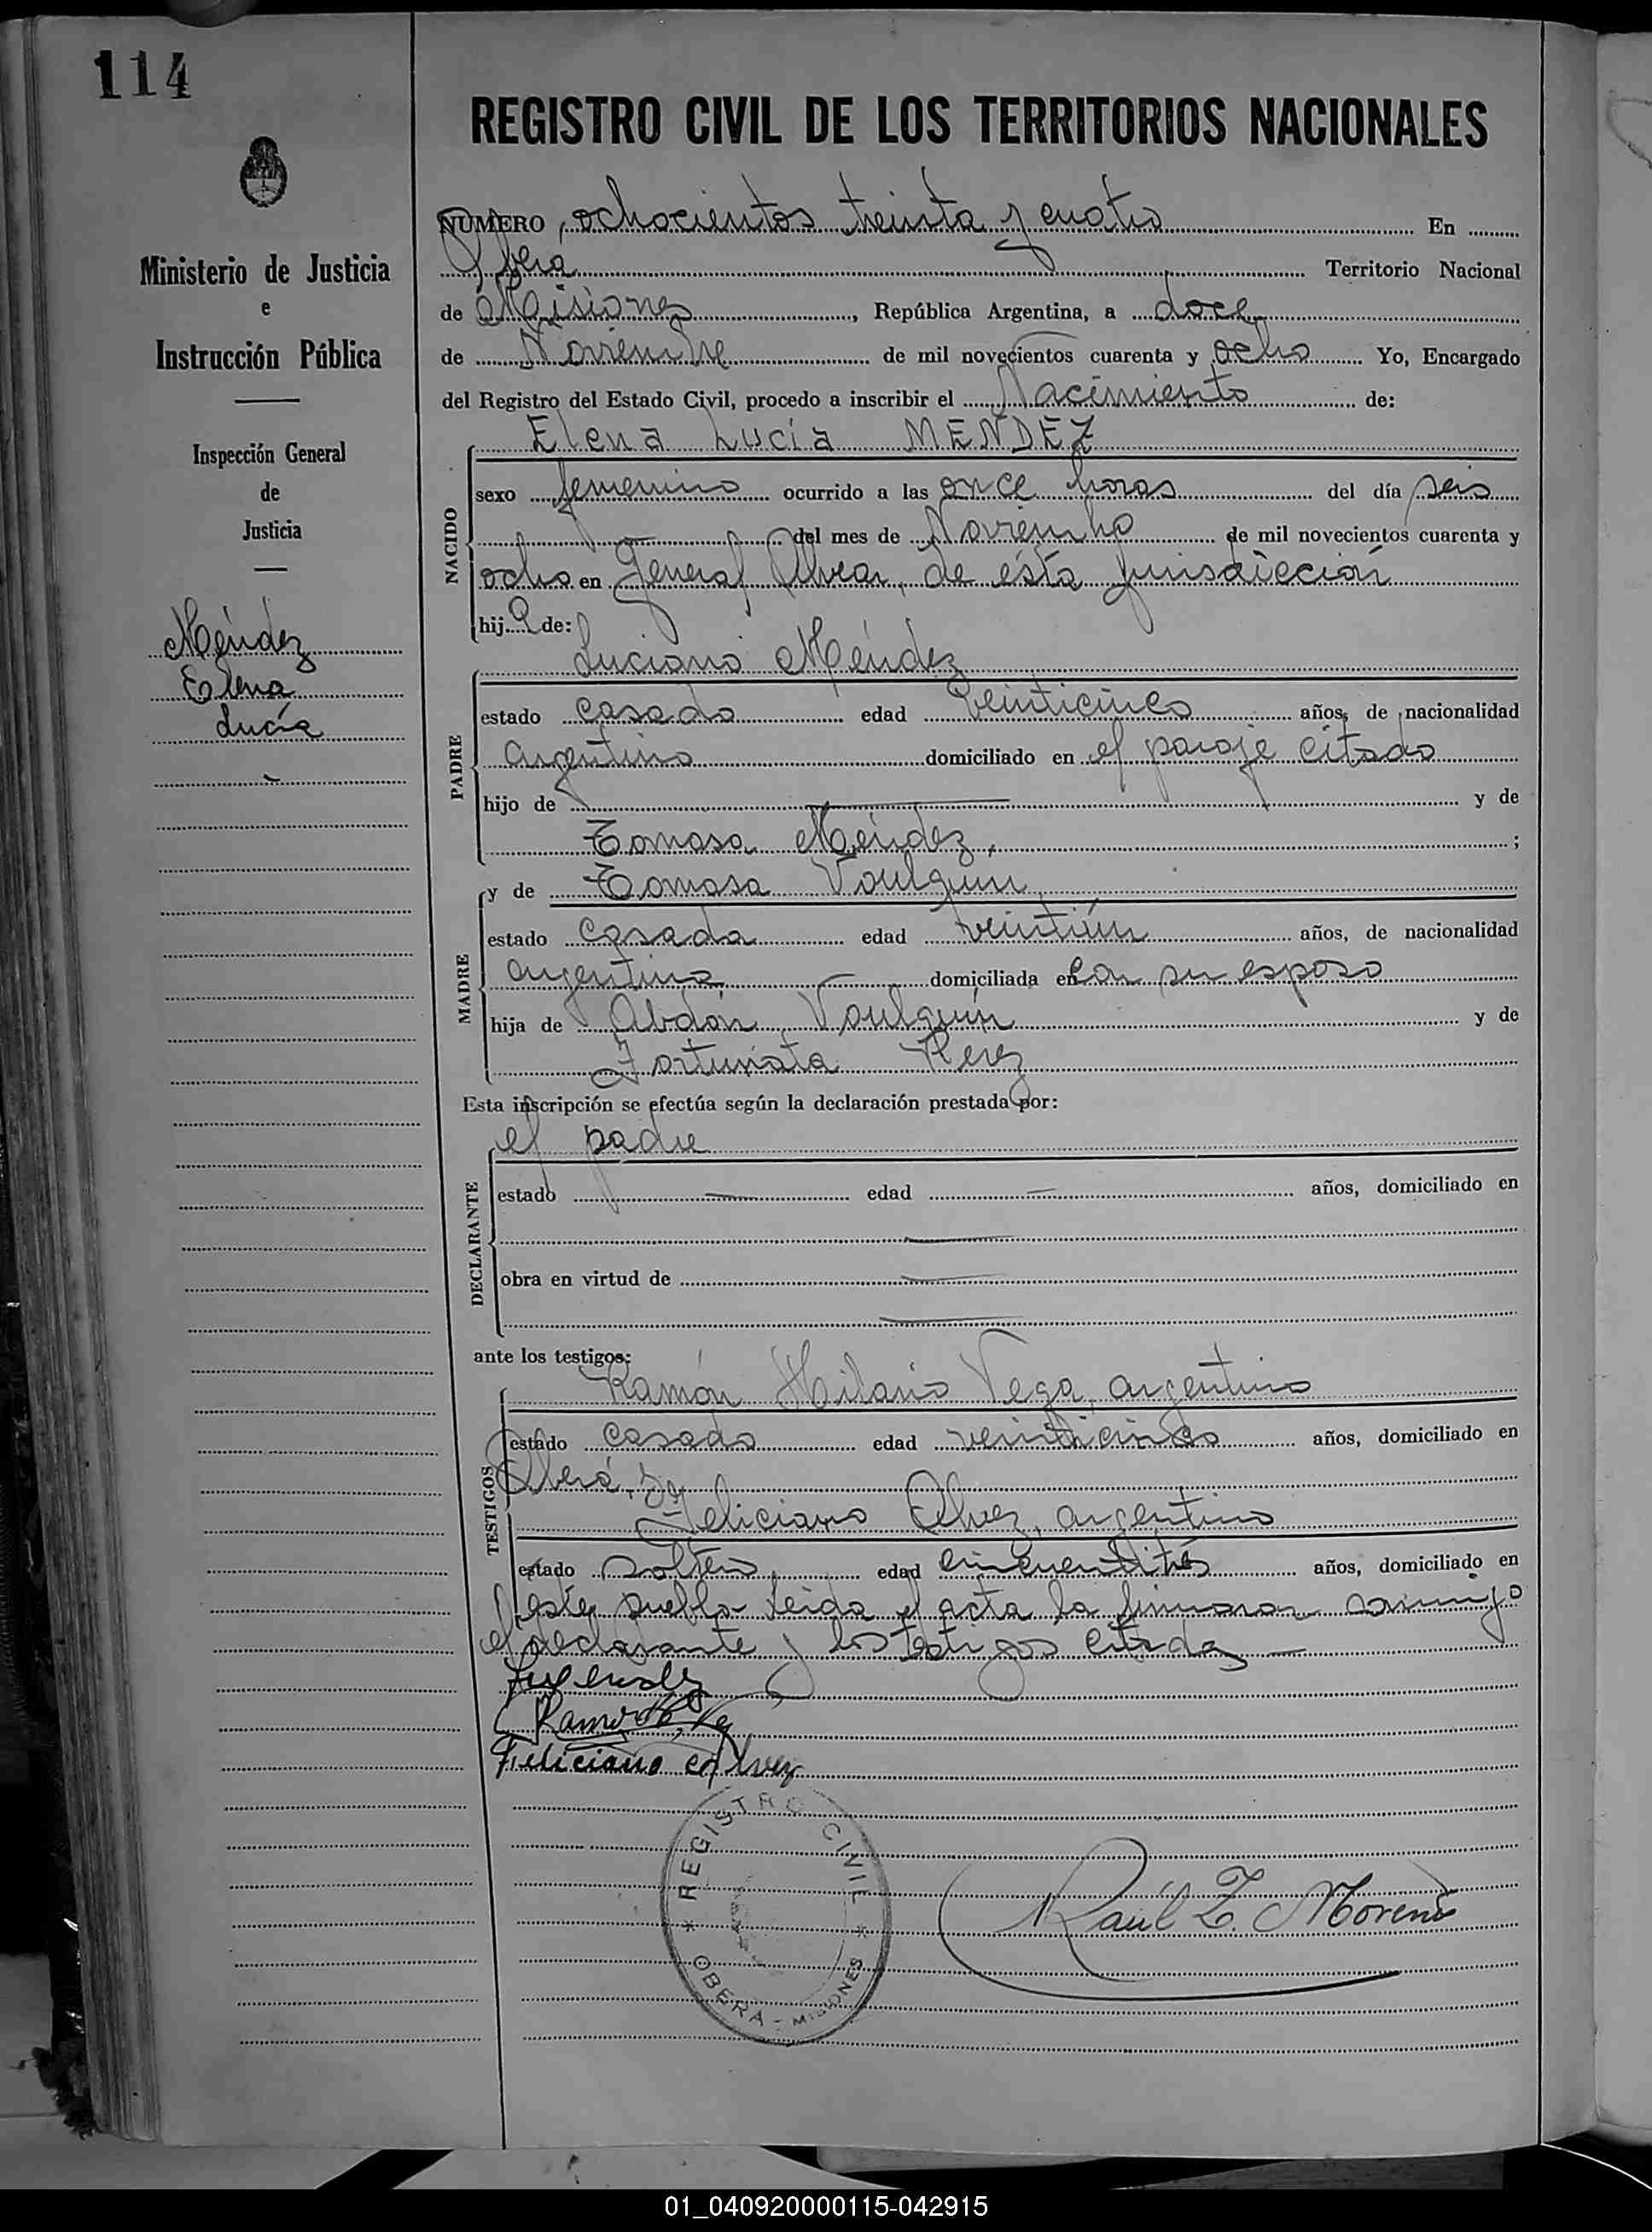 114
Ministerio de Justicia
e
Instrucción Pública
Inspección General
de
Justicia
Méndez
Elena
Lucía
REGISTRO CIVIL DE LOS TERRITORIOS NACIONALES
NUMERO ochocientos treinta y cuatro En
Oberá Territorio Nacional
de Misiones, República Argentina, a doce
de Noviembre de mil novecientos cuarenta y ocho Yo, Encargado
del Registro del Estado Civil, procedo a inscribir el Nacimiento de:
Elena Lucía MENDEZ
NACIDO
sexo femenino ocurrido a las once horas del día seis
del mes de Noviembre de mil novecientos cuarenta y
ocho en General Alvear, de ésta jurisdicción
hija de:
Luciano Méndez
PADRE
estado casado edad veinticinco años, de nacionalidad
argentino domiciliado en el paraje citado
hijo de y de
Tomasa Méndez, ;
MADRE
y de Tomasa Voulquin
estado casada edad veintiún años, de nacionalidad
argentina domiciliada en con su esposo
hija de Abdón Voulquin y de
Fortunata Perez
Esta inscripción se efectúa según la declaración prestada por:
el padre
DECLARANTE
estado edad años, domiciliado en
obra en virtud de
ante los testigos:
Ramón Hilario Vega, argentino
TESTIGOS
estado casado edad veinticinco años, domiciliado en
Oberá,
Feliciano Alvez, argentino
estado soltero edad cincuentitrés años, domiciliado en
este pueblo leida el acta la firmaron conmigo
el declarante y los testigos citados
Feliciano Alvez
REGISTRO CIVIL
OBERA - MISIONES
Raúl Z. Moreno
01_040920000115-042915